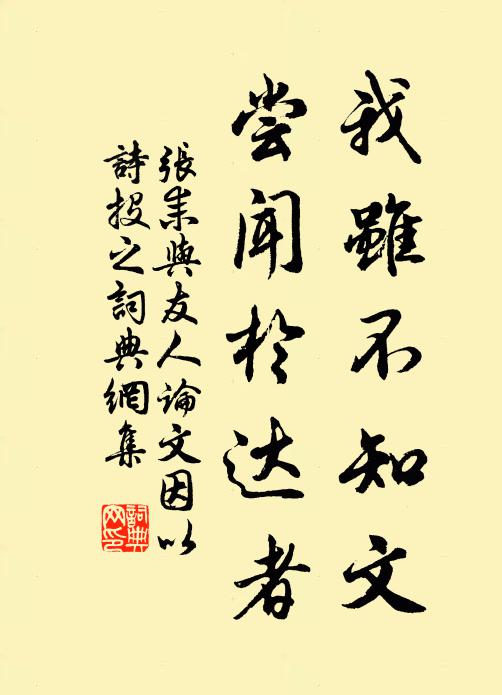 我雖不知文
尝闻於达者
張耒與友人論文因以
詩投之詞典網集
詞典网印